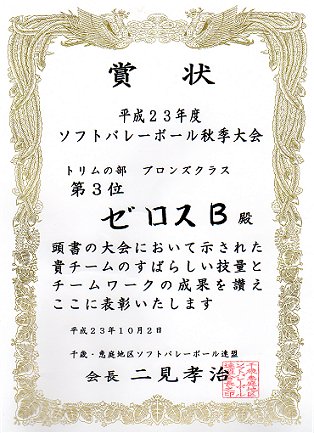 賞状
平成23年度
ソフトバレーボール秋季大会
トリムの部 ブロンズクラス
第3位
ゼロスB殿
頭書の大会において示された
貴チームのすばらしい技量と
チームワークの成果を讃え
ここに表彰いたします
平成23年10月2日
千歳・恵庭地区ソフトバレーボール連盟
会長 二見孝治